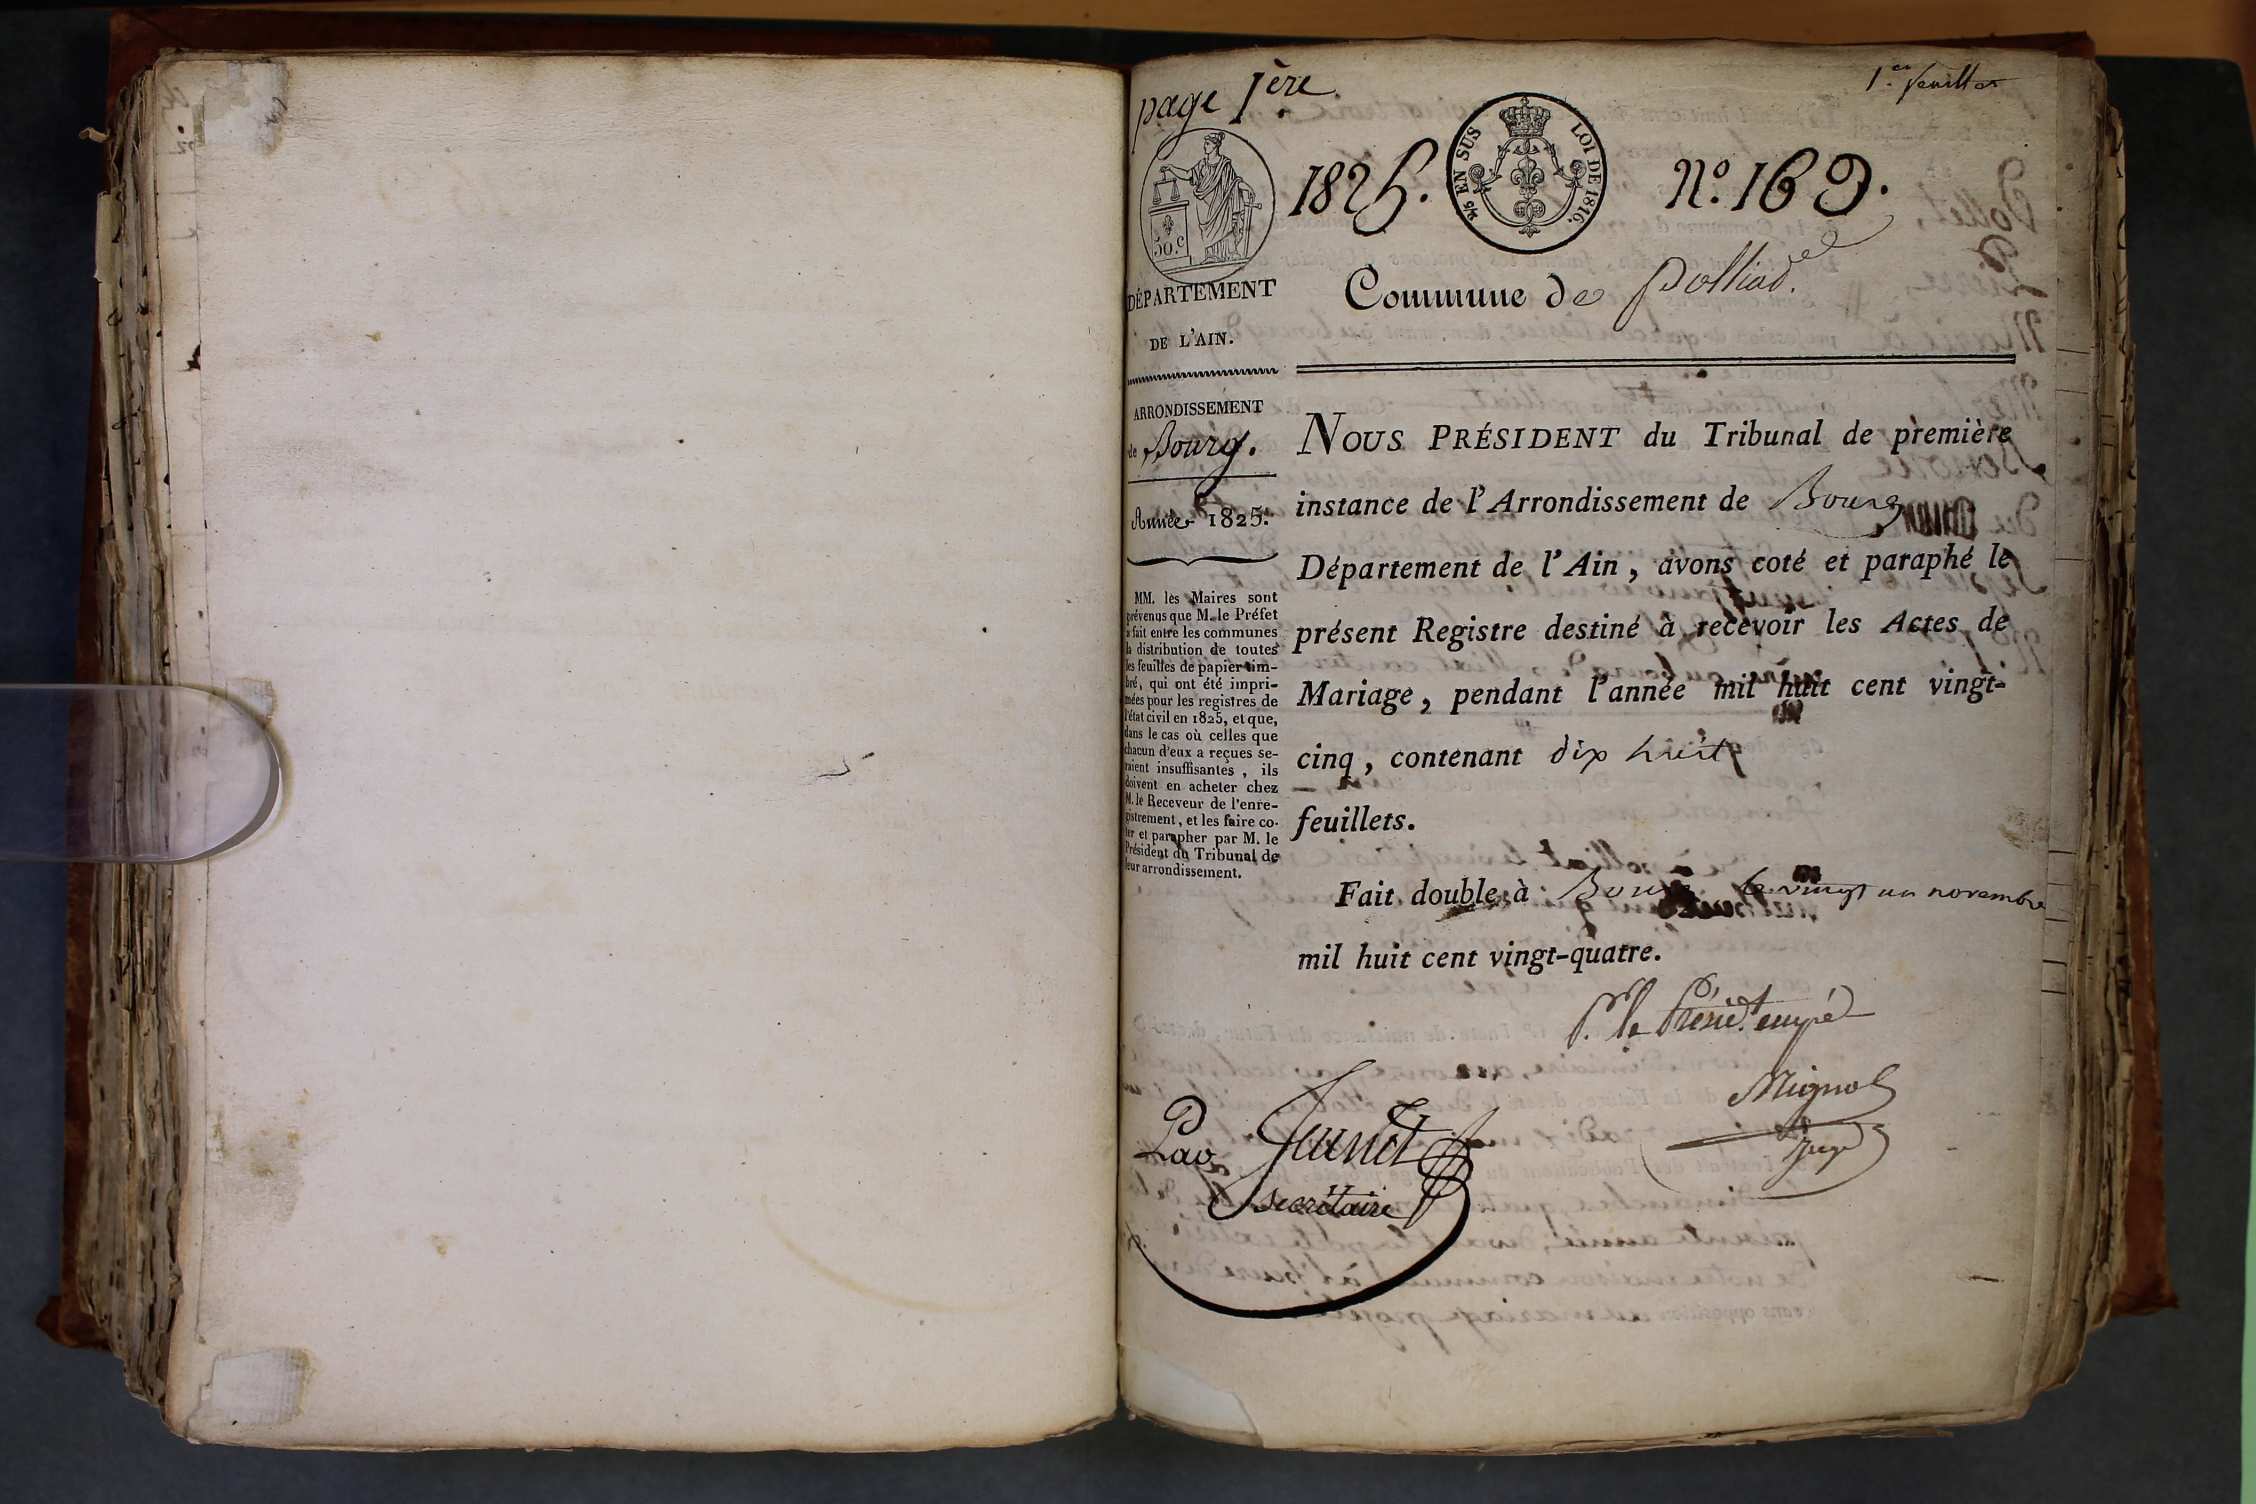 page 1ère
1er feuillet
1825.
2/5 EN SUS LOI DE 1816.
N.º 169.
50.c
DÉPARTEMENT
DE L'AIN.
Commune de Polliad.
ARRONDISSEMENT
de Bourg.
Année 1825.
MM. les Maires sont
prévenus que M. le Préfet
a fait entre les communes
la distribution de toutes
les feuilles de papier tim-
bré, qui ont été impri-
mées pour les registres de
l'état civil en 1825, et que,
dans le cas où celles que
chacun d'eux a reçues se-
raient insuffisantes, ils
doivent en acheter chez
M. le Receveur de l'enre-
gistrement, et les faire co-
ter et parapher par M. le
Président du Tribunal de
leur arrondissement.
NOUS PRÉSIDENT du Tribunal de première
instance de l'Arrondissement de Bourg
Département de l'Ain, avons coté et paraphé le
présent Registre destiné à recevoir les Actes de
Mariage, pendant l'année mil huit cent vingt-
cinq, contenant dix huit
feuillets.
Fait double à Bourg le vingt un novembre
mil huit cent vingt-quatre.
P. le Présid.t empé
Mignot
Juge
secrétaire